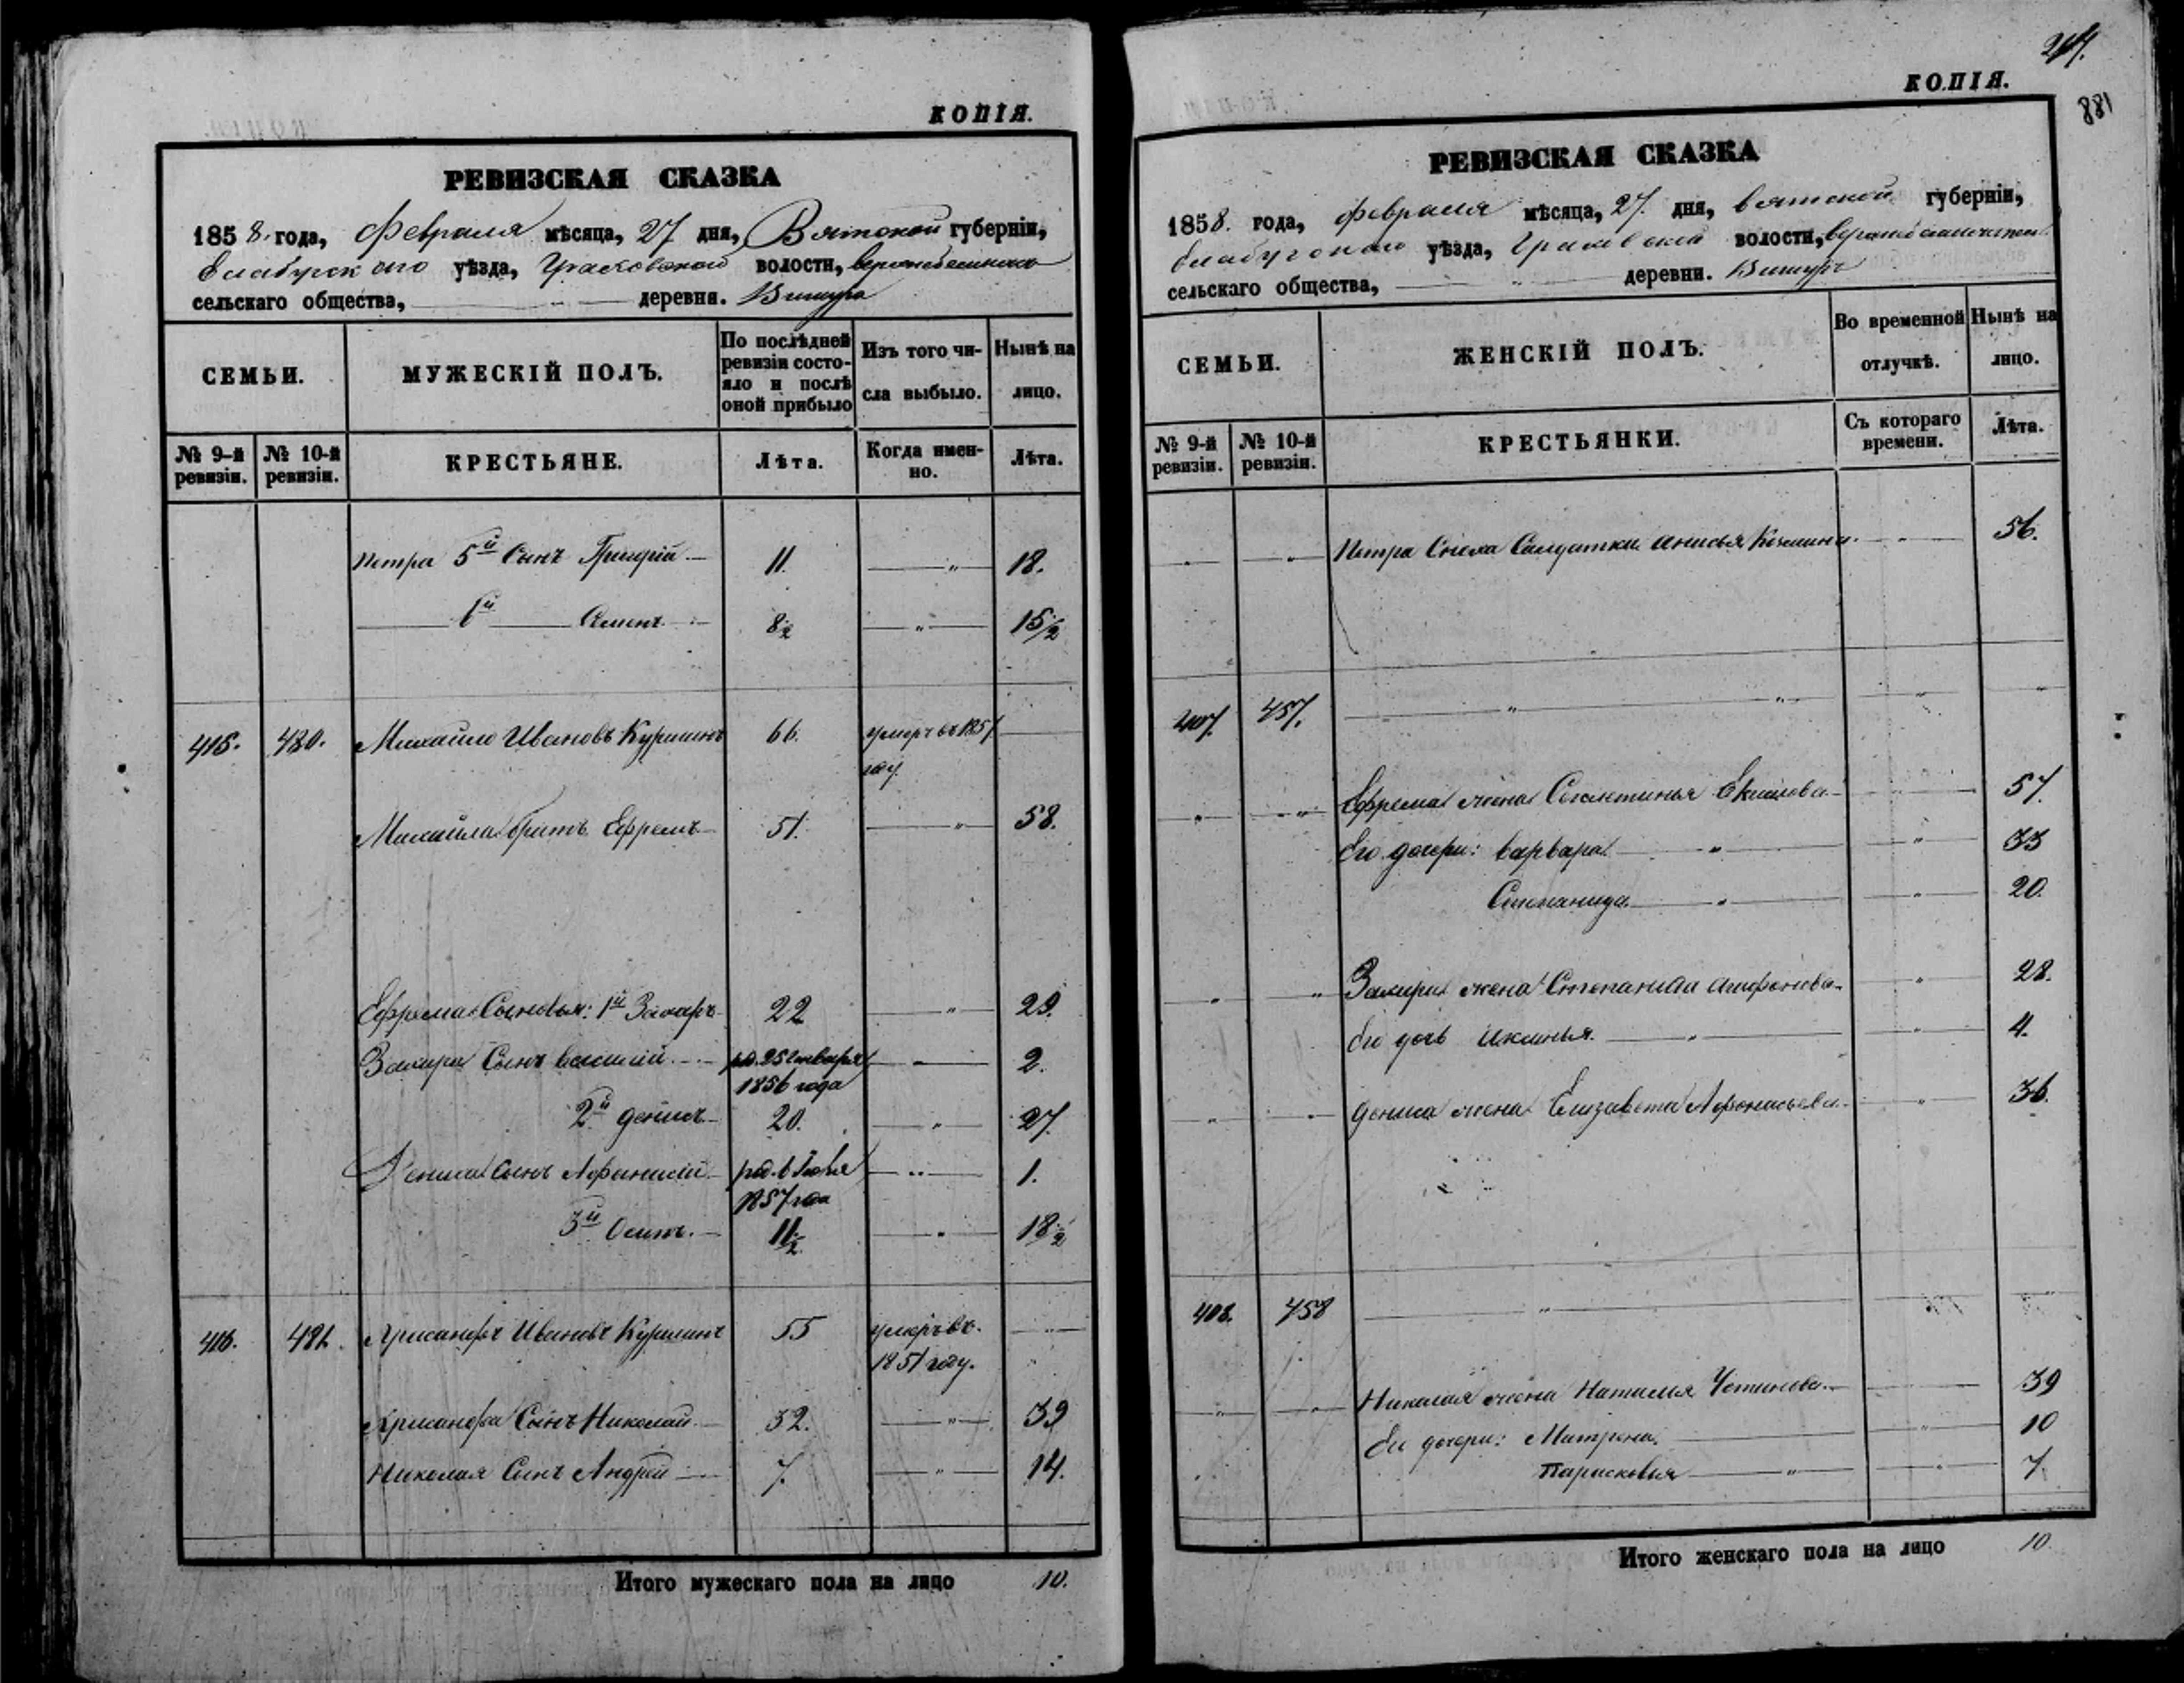 КОПІЯ.
РЕВИЗСКАЯ СКАЗКА
1858. года, Февраля мѣсяца, 27 дня, Вятской губерніи,
Елабугскаго уѣзда, волости,
сельскаго общества, деревня.
СЕМЬИ.
МУЖЕСКІЙ ПОЛЪ.
По послѣдней
ревизіи состо-
яло и послѣ
оной прибыло
Изъ того чи-
сла выбыло.
Нынѣ на
лицо.
№ 9-й
ревизіи.
№ 10-й
ревизіи.
КРЕСТЬЯНЕ.
Лѣта.
Когда имен-
но.
Лѣта.
Петра 5й Сынъ Григрій 11. " 18.
6й Семенъ 8½ " 15½
415. 480. Михайло Ивановъ Куршинъ 66. умеръ въ 1857
году
Михайла братъ Ефремъ 51. " 58.
Ефрема Сыновья: 1й Захаръ 22 " 29.
Захара Сынъ Василій рд. 25 января 2.
1856 года
2й Денисъ 20. " 27.
Дениса Сынъ Афанасій род. в 1.
1857 года
3й Осипъ. 11½ " 18½
416. 481. Хрисанфъ Ивановъ Куршинъ 55 умеръ въ
1851 году.
Хрисанфа Сынъ Николай 32. " 39
Николая Сынъ Андрей 7. " 14.
Итого мужескаго пола на лицо 10.
КОПІЯ.
881
РЕВИЗСКАЯ СКАЗКА
1858. года, февраля мѣсяца, 27. дня, Вятской губерніи,
Елабугскаго уѣзда, волости,
сельскаго общества, деревни.
СЕМЬИ.
ЖЕНСКІЙ ПОЛЪ.
Во временной
отлучкѣ.
Нынѣ на
лицо.
№ 9-й
ревизіи.
№ 10-й
ревизіи.
КРЕСТЬЯНКИ.
Съ котораго
времени.
Лѣта.
Петра Сноха Салдатка Анисья Козмина 56.
407. 457.
Ефрема жена 57.
Его дочери: Варвара 33
Степанида 20.
Захара жена Степанида Агафонова 28.
Его дочь Ксинья 4.
Дениса жена Елизавета Афонасьева 36.
408. 458
Николая жена Наталия Устинова 39
Ея дочери: Матрена 10
Парасковья 7
Итого женскаго пола на лицо 10